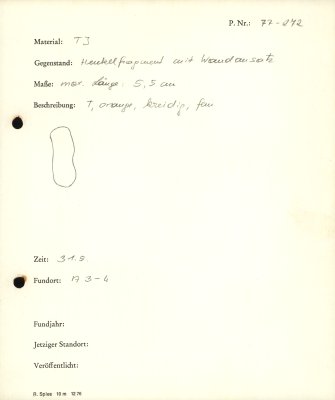 P. Nr.: 77-242
Material: TJ
Gegenstand: Henkelfragment mit Wandansatz
Maße: max. Länge: 5,5 cm
Beschreibung: T, orange, kreidig, fein
Zeit: 31.8.
Fundort: A 3-4
Fundjahr:
Jetziger Standort:
Veröffentlicht:
R. Spies 10 m 12 76